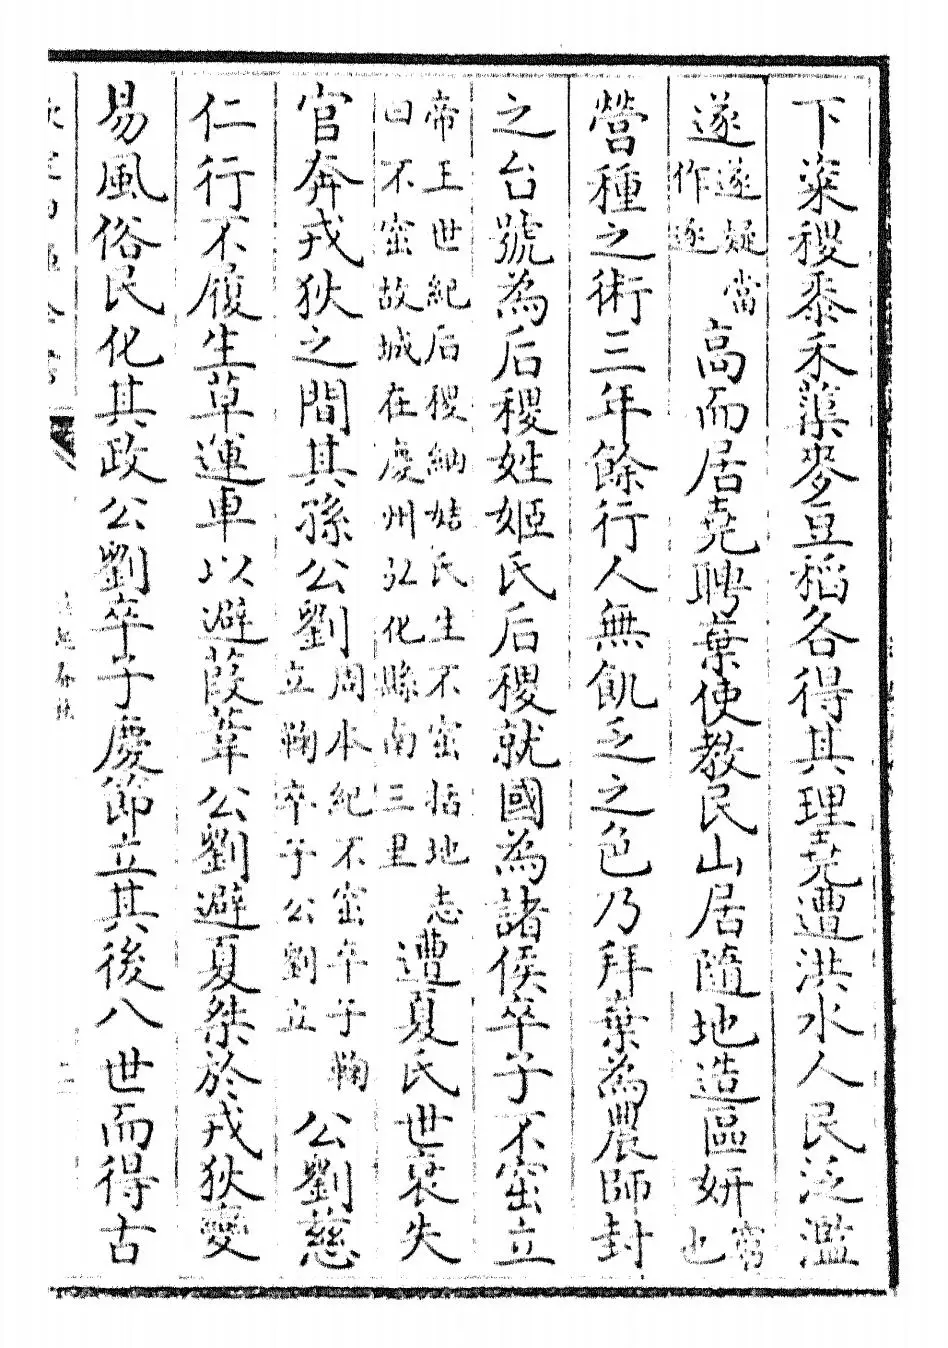 下粢稷黍禾蕖麥豆稻各得其理堯遭洪水人民泛濫
遂遂疑當作逐高而居堯聘棄使教民山居隨地造區妍窮也
營種之術三年餘行人無飢乏之色乃拜棄為農師封
之台號為后稷姓姬氏后稷就國為諸侯卒子不窋立
帝王世紀后稷納姞氏生不窋括地志曰不窋故城在慶州弘化縣南三里遭夏氏世衰失
官奔戎狄之間其孫公劉周本紀不窋卒子鞠立鞠卒子公劉立公劉慈
仁行不履生草運車以避葭葦公劉避夏桀於戎狄變
易風俗民化其政公劉卒子慶節立其後八世而得古